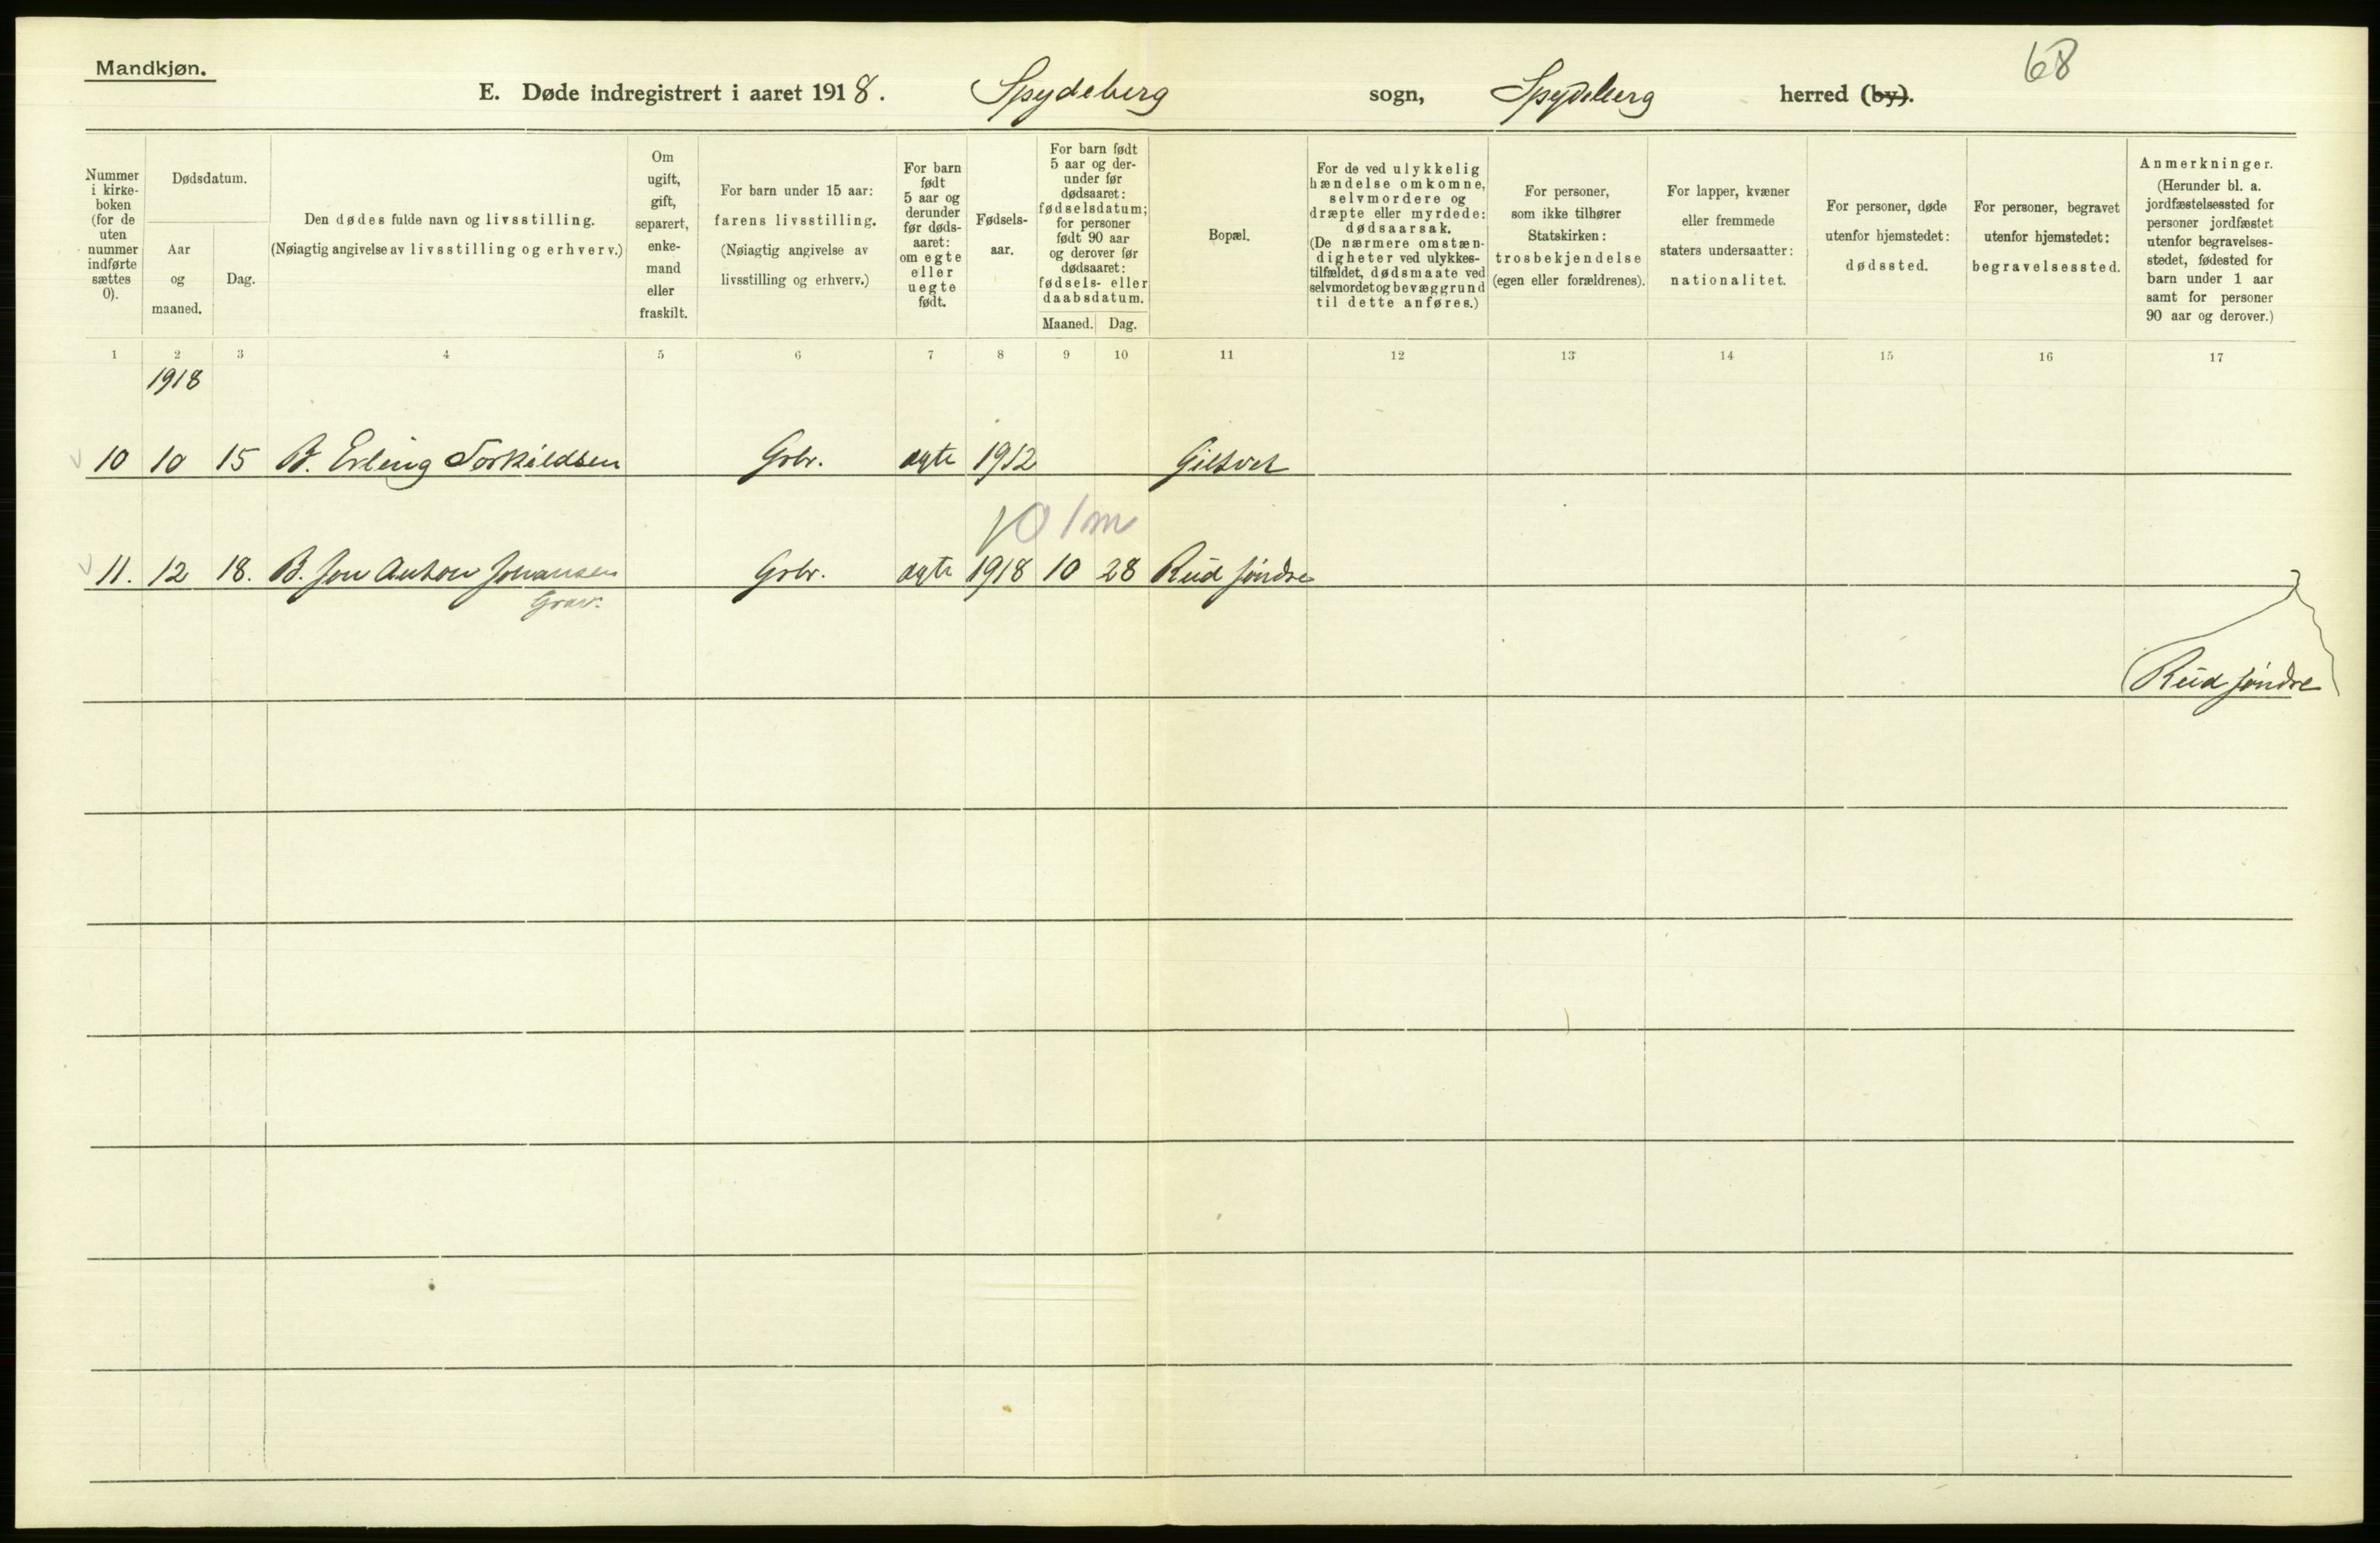 Mandkjøn.
68
E. Døde indregistrert i aaret 1918. Spydeberg sogn, Spydeberg herred (by).
Nummer i kirke- boken (for de uten nummer indførte sættes 0).
Dødsdatum.
Aar og maaned.
Dag.
Den dødes fulde navn og livsstilling.
(Nøiagtig angivelse av livsstilling og erhverv.)
Om ugift, gift, separert, enke- mand eller fraskilt.
For barn under 15 aar: farens livsstilling. (Nøiagtig angivelse av livsstilling og erhverv.)
For barn født 5 aar og derunder før døds- aaret: om egte eller uegte født.
Fødsels- aar.
For barn født 5 aar og der- under før dødsaaret: fødselsdatum; for personer født 90 aar og derover før dødsaaret: fødsels- eller daabsdatum.
Maaned. Dag.
Bopæl.
For de ved ulykkelig hændelse omkomne, selvmordere og dræpte eller myrdede: dødsaarsak. (De nærmere omstæn- digheter ved ulykkes- tilfældet, dødsmaate ved selvmordet og bevæggrund til dette anføres.)
For personer, som ikke tilhører Statskirken: trosbekjendelse (egen eller forældrenes).
For lapper, kvæner eller fremmede staters undersaatter: nationalitet.
For personer, døde utenfor hjemstedet: dødssted.
For personer, begravet utenfor hjemstedet: begravelsessted.
Anmerkninger. (Herunder bl. a. jordfæstelsessted for personer jordfæstet utenfor begravelses- stedet, fødested for barn under 1 aar samt for personer 90 aar og derover.)
1 2 3 4 5 6 7 8 9 10 11 12 13 14 15 16 17
1918
10 10 15 B. Erling Torkildsen Grbr. ægte 1912
0 1 m
11. 12 18. B. Jon Anton Johansen Grbr. ægte 1918 10 28 Rud søndre
Rud søndre